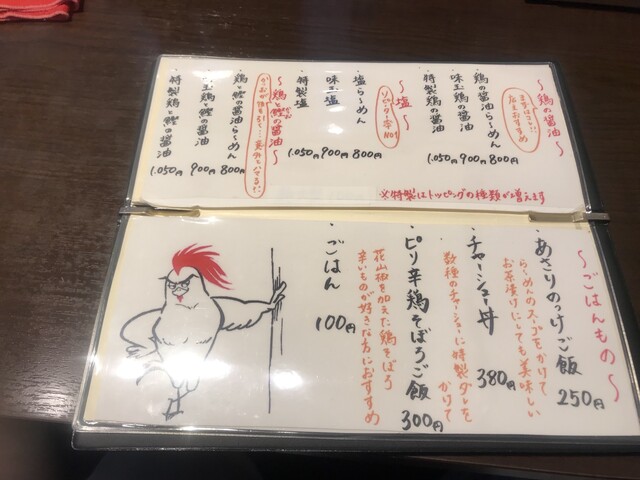 〜鶏の醤油〜
まずはコレ!!
店主おすすめ
・鶏の醤油らーめん 800円
・味玉鶏の醤油 900円
・特製鶏の醤油 1.050円
〜塩〜
リピーター率No1
・塩らーめん 800円
・味玉塩 900円
・特製塩 1.050円
〜鶏と鰹の醤油〜
・鶏と鰹の醤油らーめん 800円
・味玉鶏と鰹の醤油 900円
・特製鶏と鰹の醤油 1.050円
※特製はトッピングの種類が増えます
〜ごはんもの〜
・あさりのっけご飯 250円
らーめんのスープをかけて
お茶漬けにしても美味しい
・チャーシュー丼 380円
数種のチャーシューに特製ダレを
かけて
・ピリ辛鶏そぼろご飯 300円
花山椒を加えた鶏そぼろ
辛いものが好きな方におすすめ
・ごはん 100円